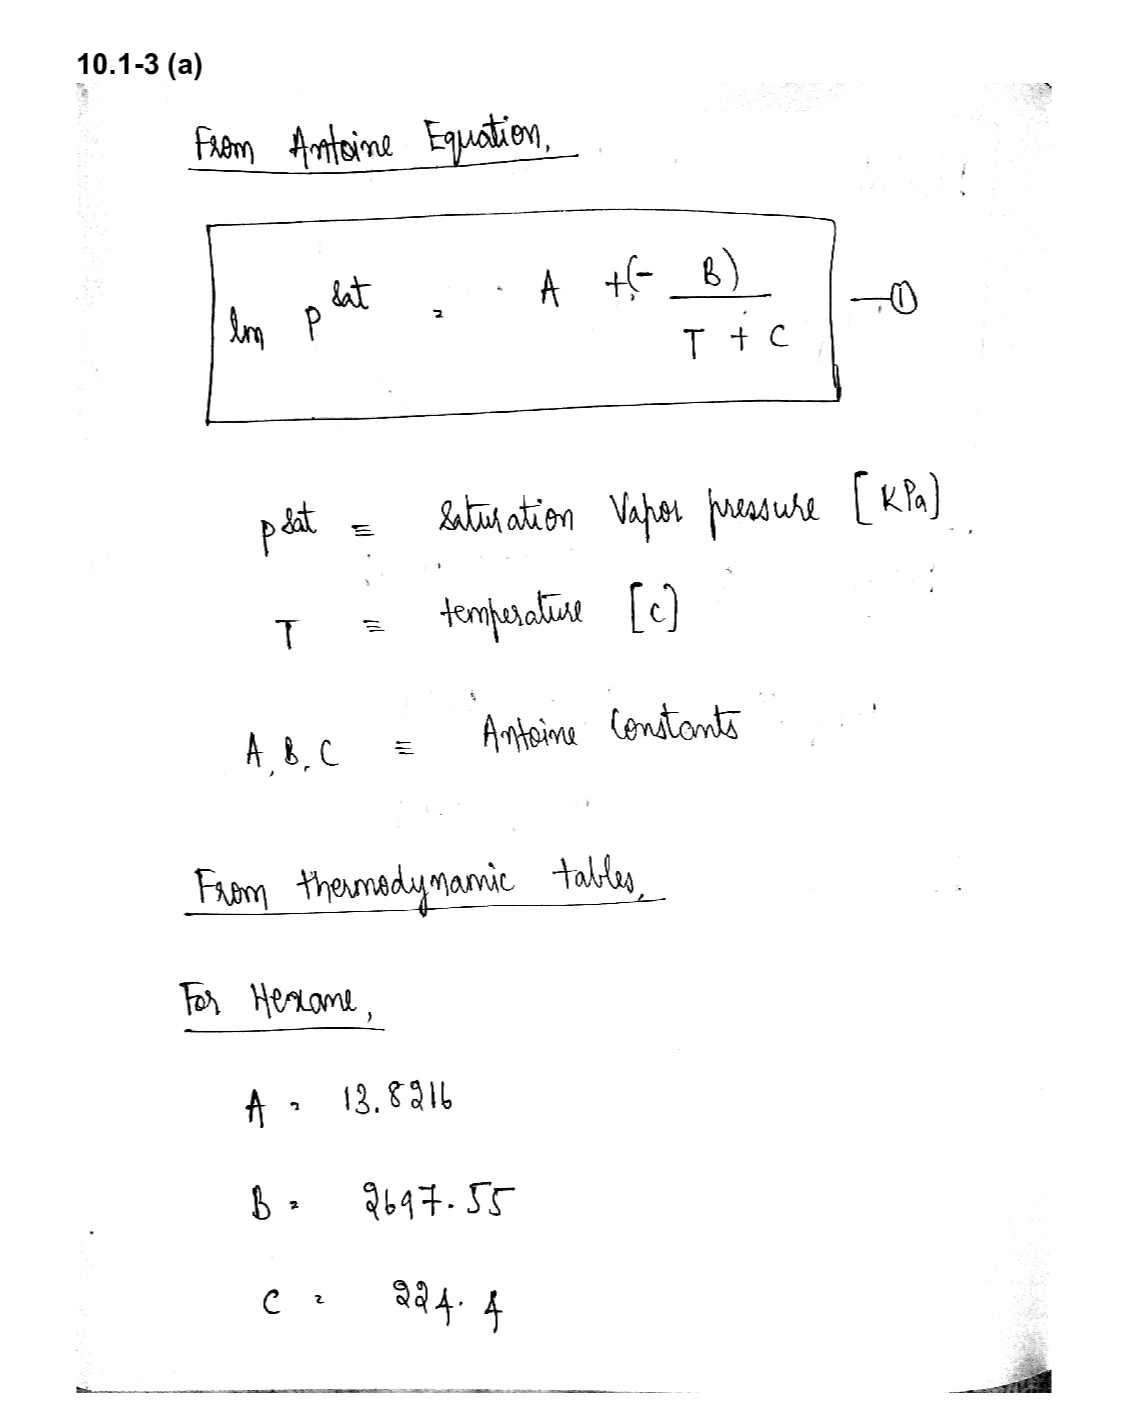 10.1-3 (a)
From Antoine Equation,
ln P^sat = A + (- B) / T + C —①
P^sat ≡ Saturation Vapor pressure [KPa]
T ≡ temperature [C]
A, B, C ≡ Antoine Constants
From thermodynamic tables,
For Hexane,
A = 13.8216
B = 2697.55
C = 224.4